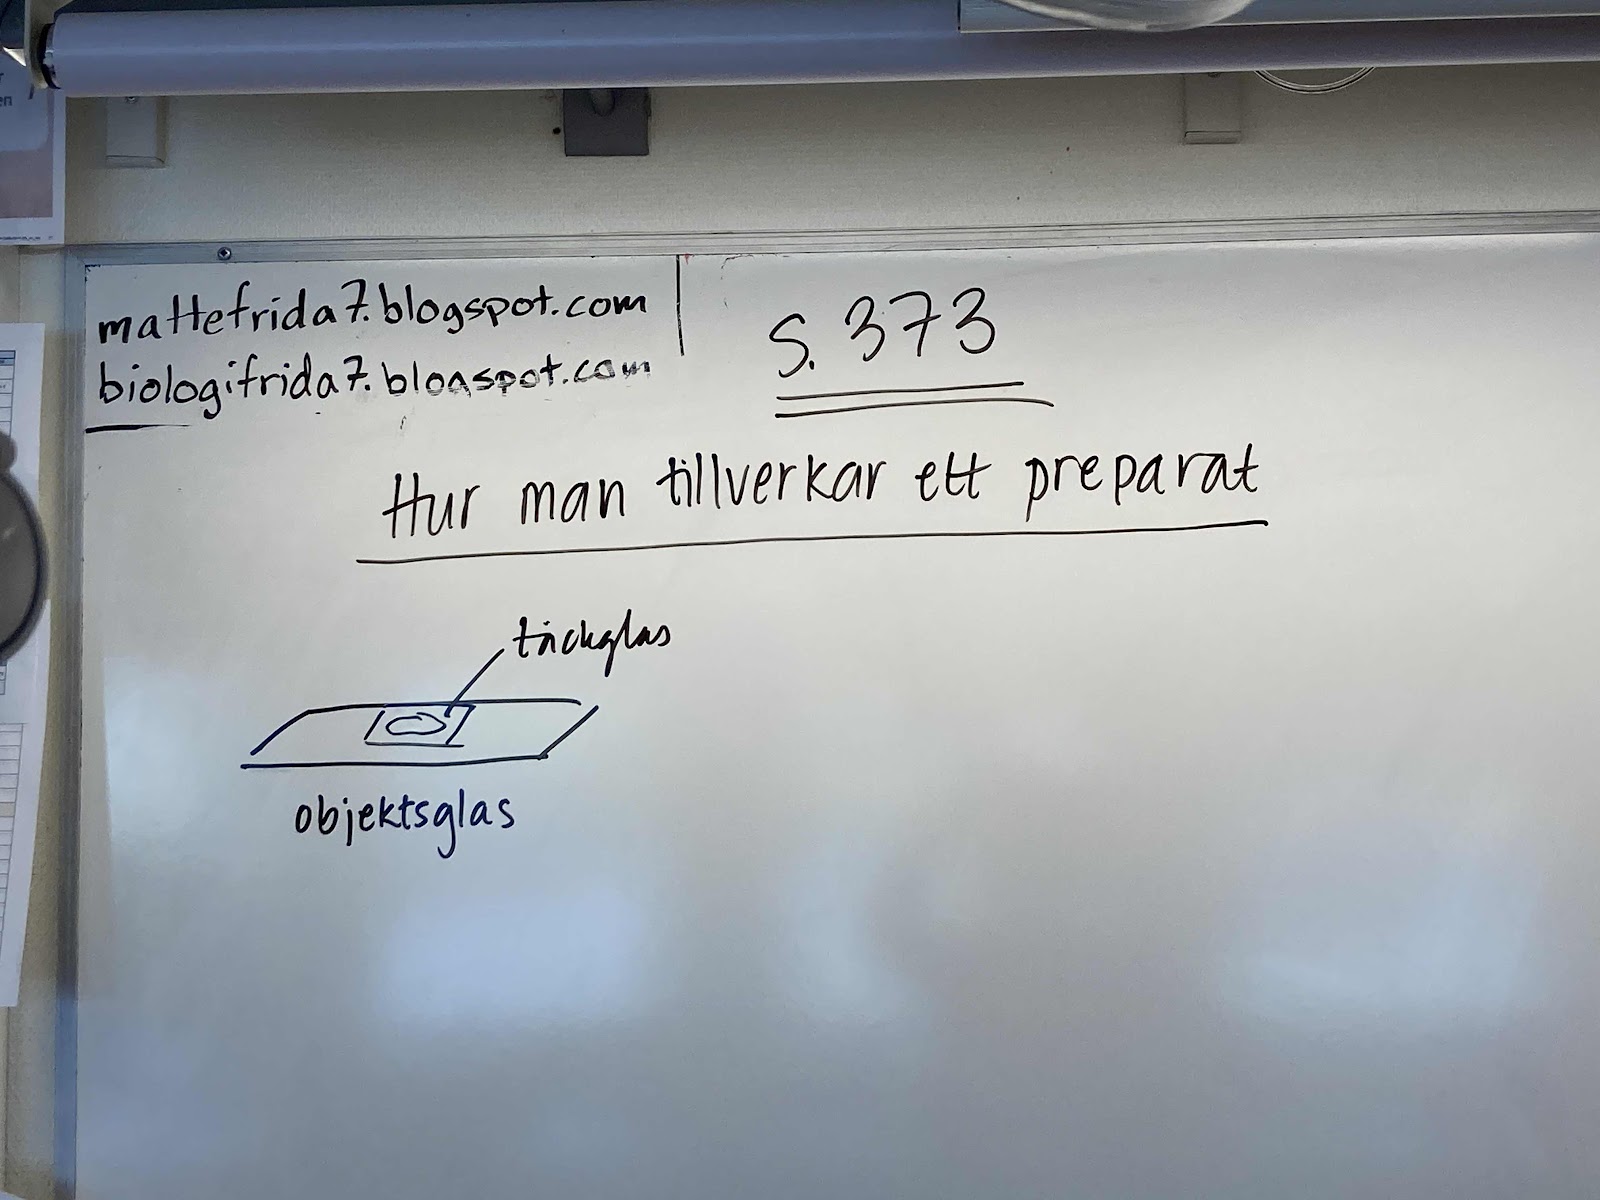 mattefrida7.blogspot.com
biologifrida7.blogspot.com
S. 373
Hur man tillverkar ett preparat
täckglas
objektsglas